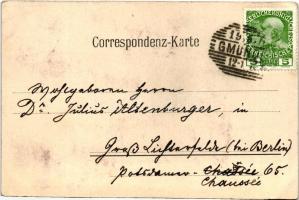 Correspondenz-Karte
GMUN
5
Wohlgeboren Herrn
Dr. Julius Altenburger, in
Groß Lichterfelde (bei Berlin)
Potsdamer- Chaussée 65.
Chaussée